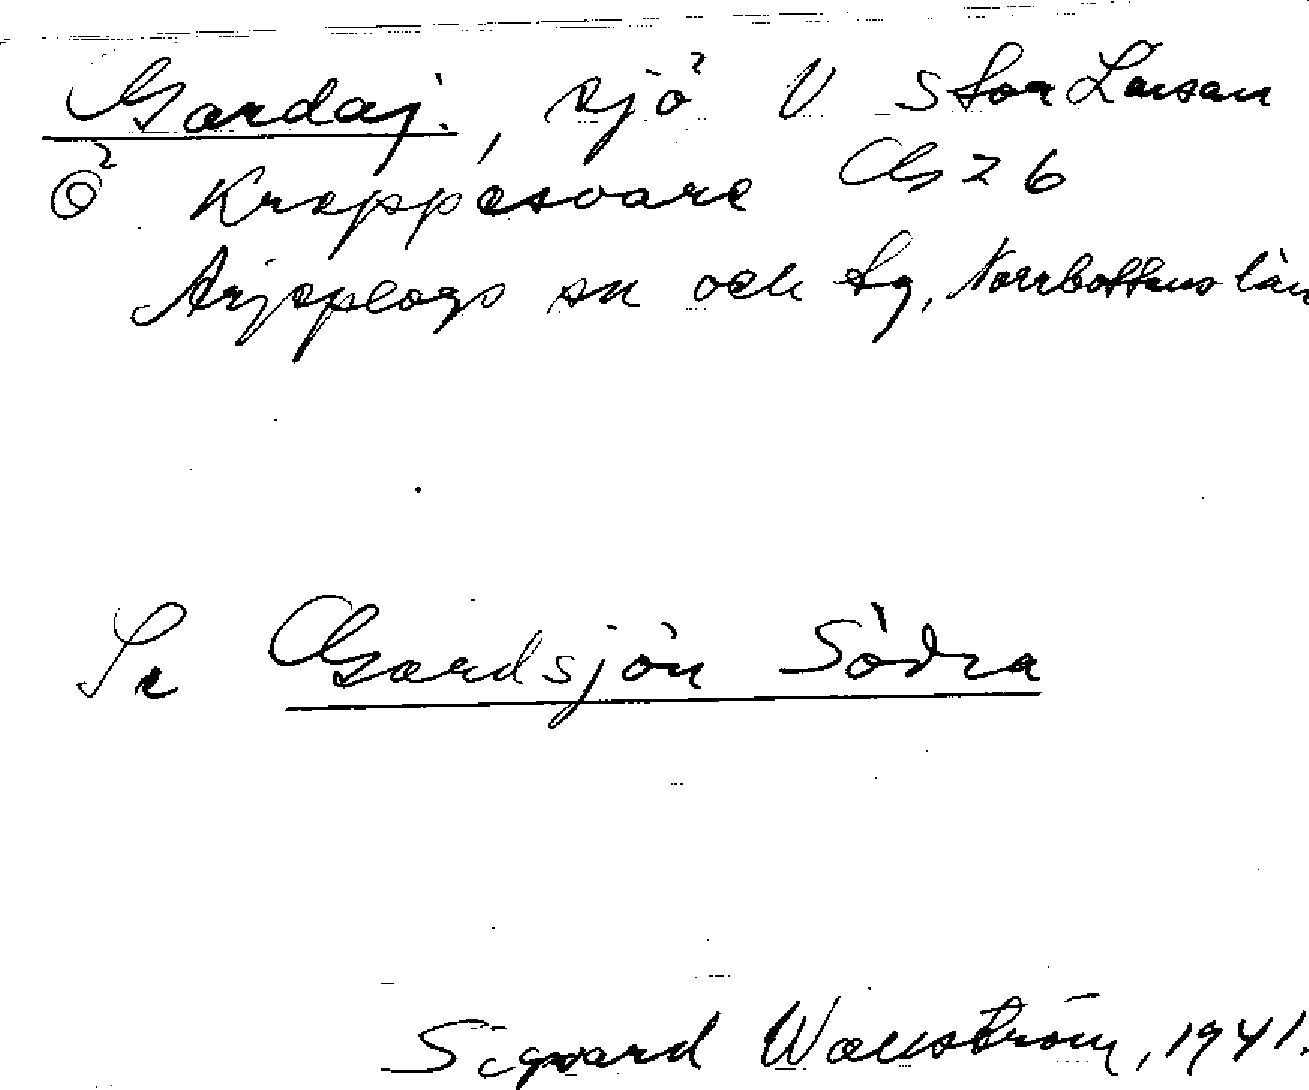 Gardaj., sjö V Stor Larsan
Ö Krappesvare Gb 26
Arjeplogs sn och tg, Norrbottens län
Se Gardsjön Södra
Sigvard Wallström, 1941.